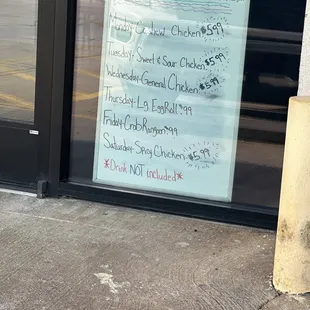 Monday- Chicken $5.99
Tuesday- Sweet & Sour Chicken $5.99
Wednesday-General Chicken $5.99
Thursday- Lg. EggRoll .99
Friday-Crab Rangoon .99
Saturday-Spicy Chicken $5.99
*Drink NOT included*